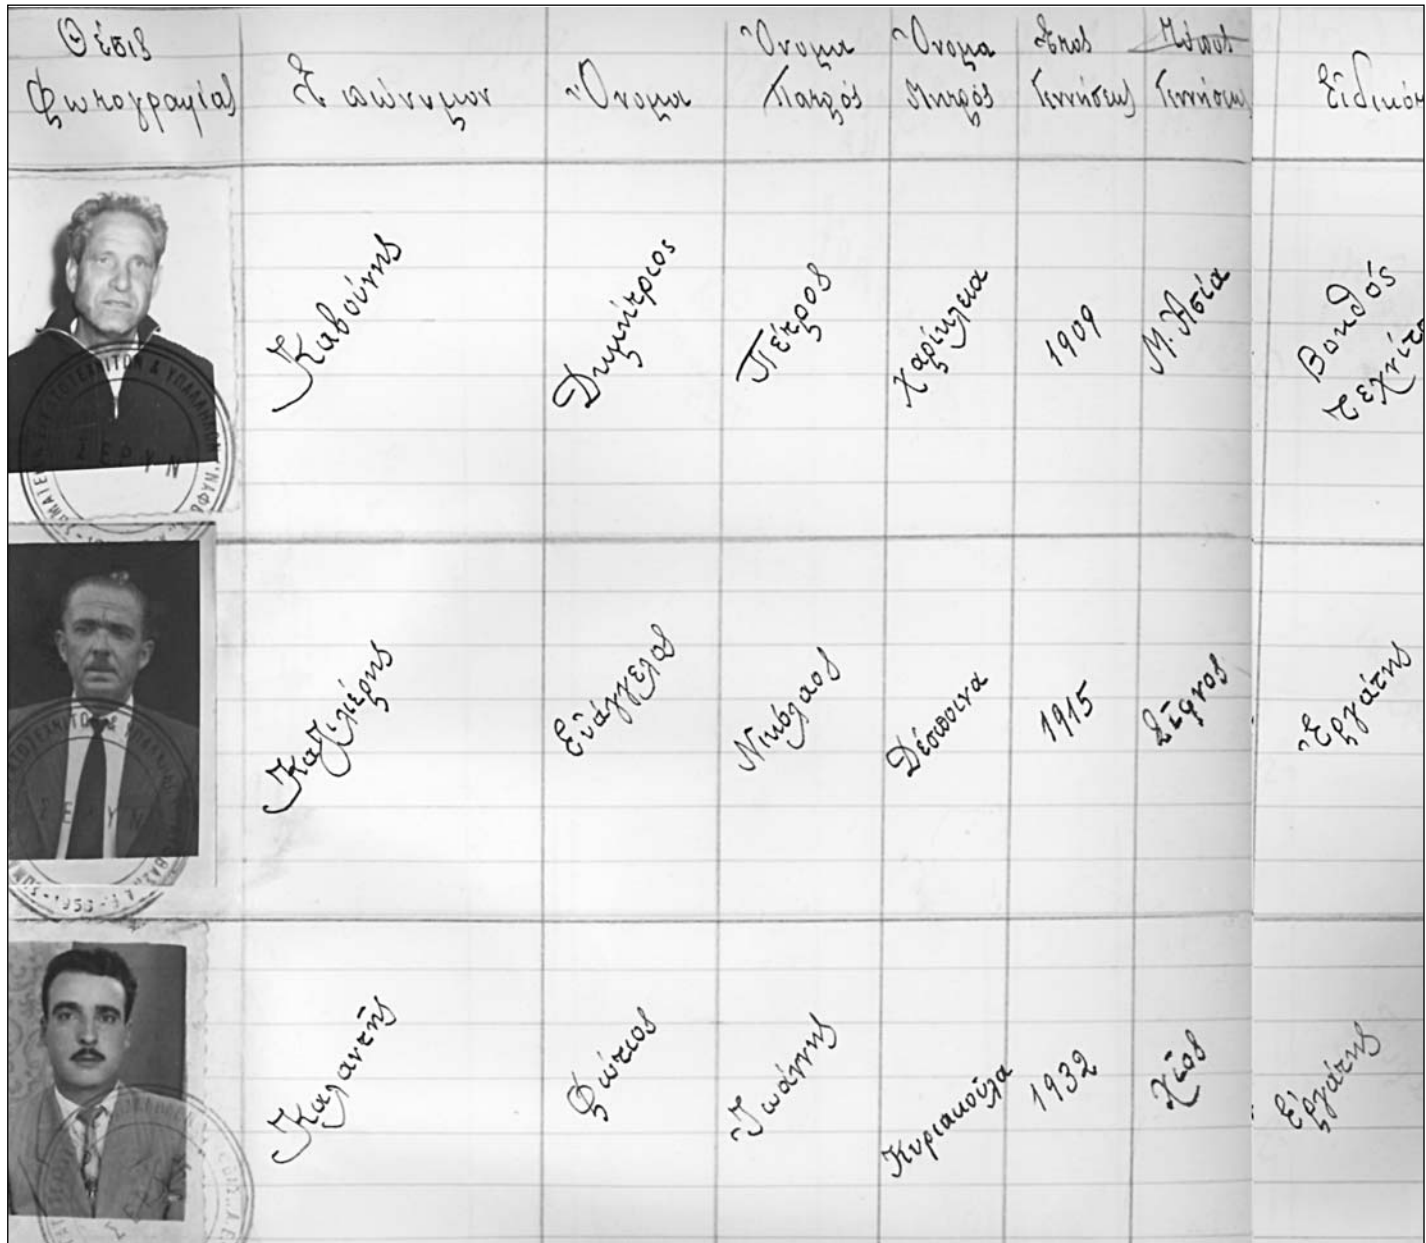 Θέσις
Φωτογραφίας
Ἐπώνυμον
Ὄνομα
Ὄνομα
Πατρός
Ὄνομα
Μητρός
Ἔτος
Γεννήσεως
Τόπος
Γεννήσεως
Εἰδικότ
Καβούνης
Δημήτριος
Πέτρος
Χαρίκλεια
1909
Μ. Ἀσία
Βοηθός
τεχνίτ
ΣΕΡΥΝ
Καζιλιέρης
Εὐάγγελος
Νικόλαος
Δέσποινα
1915
Σίφνος
Ἐργάτης
Καλαντῆς
Φώτιος
Ἰωάννης
Κυριακούλα
1932
Χῖος
Ἐργάτης